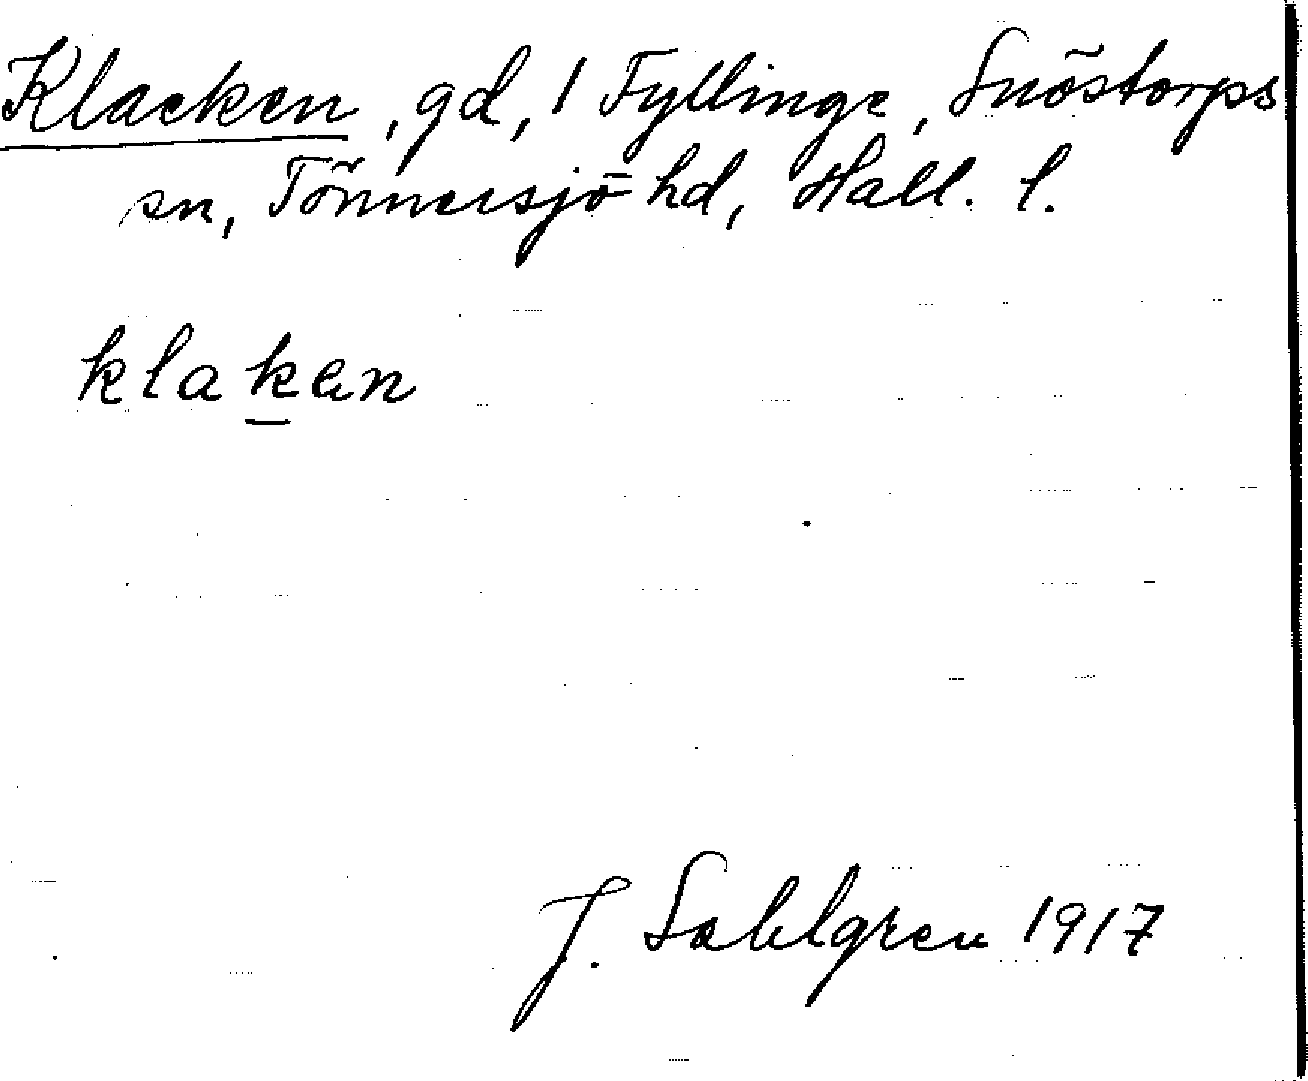 Klacken, gd, 1 Fyllinge, Snöstorps
sn, Tönnersjö hd, Hall. l.
klaken
J. Sahlgren 1917